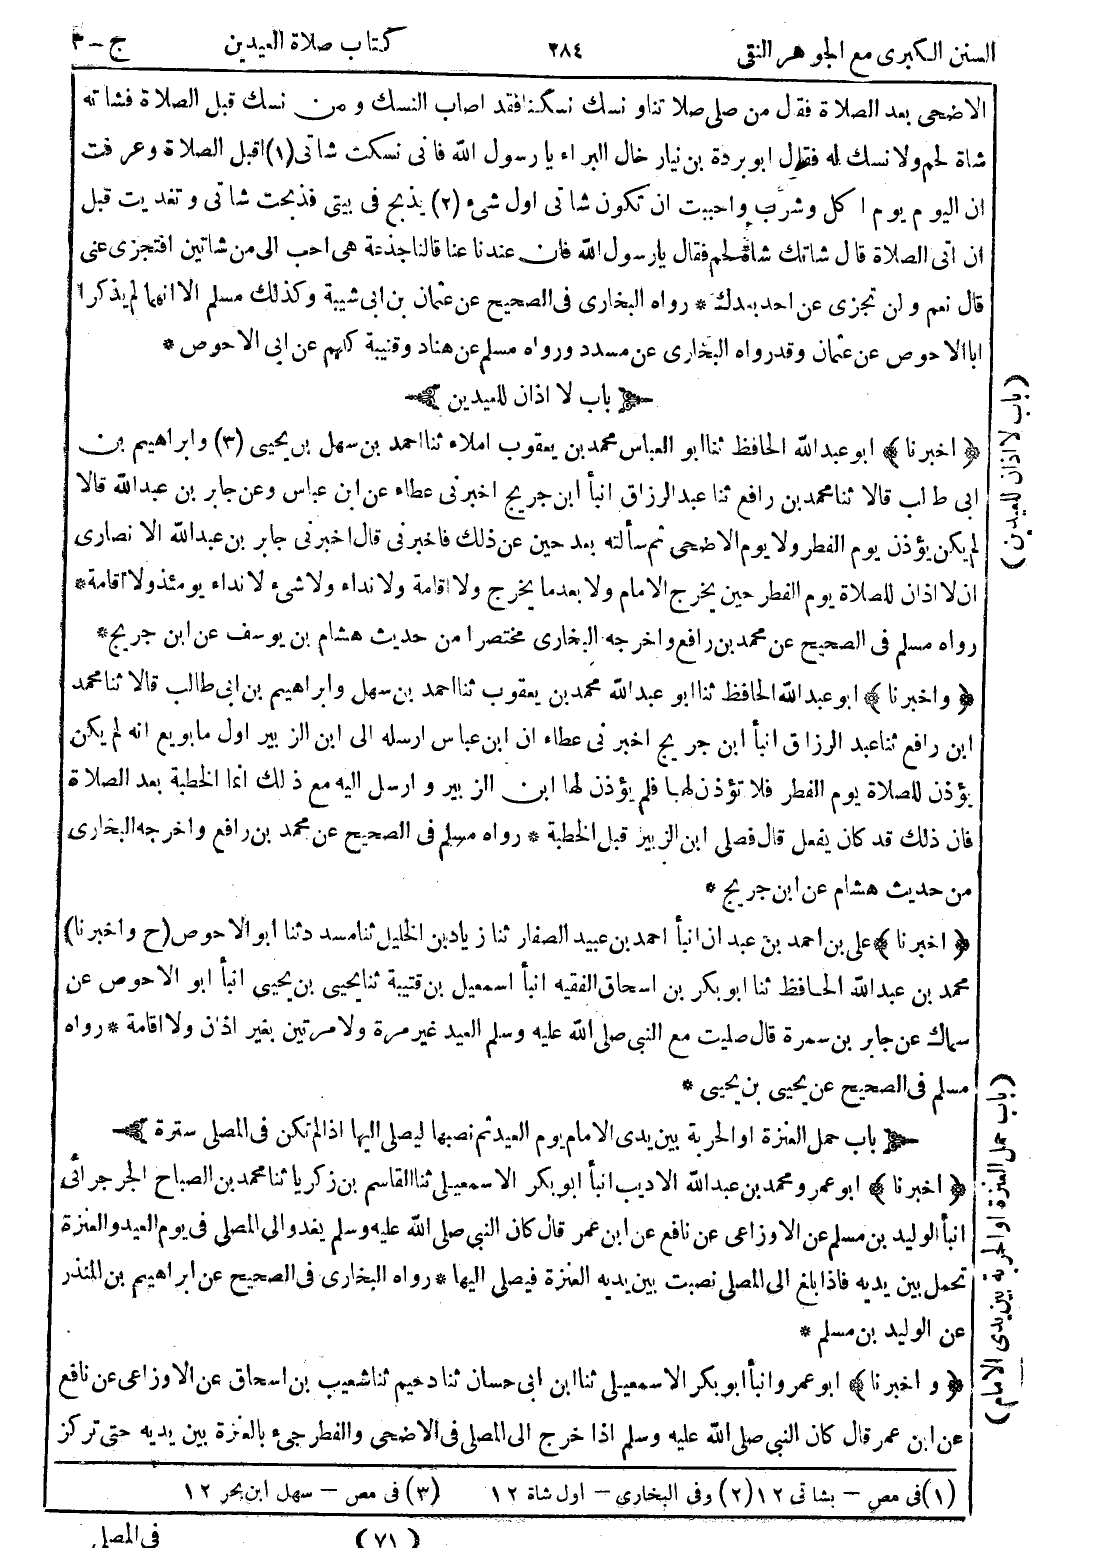 السنن الكبرى مع الجوهر النقى ٢٨٤ كتاب صلاة العيدين ج – ٣
الاضحى بعد الصلاة فقال من صلى صلاتنا ونسك نسكنا فقد اصاب النسك ومن نسك قبل الصلاة فشاته
شاة لحم ولا نسك له فقال ابو بردة بن نيار خال البراء يا رسول الله فانى نسكت شاتى (١) قبل الصلاة وعرفت
ان اليوم يوم اكل وشرب واحببت ان تكون شاتى اول شىء (٢) يذبح فى بيتى فذبحت شاتى وتغديت قبل
ان اتى الصلاة قال شاتك شاة لحم فقال يا رسول الله فان عندنا عناقا لنا جذعة هى احب الى من شاتين افتجزى عنى
قال نعم ولن تجزى عن احد بعدك * رواه البخارى فى الصحيح عن عثمان بن ابى شيبة وكذلك مسلم الا انهما لم يذكرا
ابا الاحوص عن عثمان وقد رواه البخارى عن مسدد ورواه مسلم عن هناد وقتيبة كلهم عن ابى الاحوص *
باب لا اذان للعيدين
﴿ اخبرنا ﴾ ابو عبد الله الحافظ ثنا ابو العباس محمد بن يعقوب املاء ثنا احمد بن سهل بن يحيى (٣) وابراهيم بن
ابى طالب قالا ثنا محمد بن رافع ثنا عبد الرزاق انبأ ابن جريج اخبرنى عطاء عن ابن عباس وعن جابر بن عبد الله قالا
لم يكن يؤذن يوم الفطر ولا يوم الاضحى ثم سألته بعد حين عن ذلك فاخبرنى قال اخبرنى جابر بن عبد الله الانصارى
ان لا اذان للصلاة يوم الفطر حين يخرج الامام ولا بعدما يخرج ولا اقامة ولا نداء ولا شىء لا نداء يومئذ ولا اقامة *
رواه مسلم فى الصحيح عن محمد بن رافع واخرجه البخارى مختصرا من حديث هشام بن يوسف عن ابن جريج *
﴿ واخبرنا ﴾ ابو عبد الله الحافظ ثنا ابو عبد الله محمد بن يعقوب ثنا احمد بن سهل وابراهيم بن ابى طالب قالا ثنا محمد
ابن رافع ثنا عبد الرزاق انبأ ابن جريج اخبرنى عطاء ان ابن عباس ارسله الى ابن الزبير اول ما بويع انه لم يكن
يؤذن للصلاة يوم الفطر فلا تؤذن لها فلم يؤذن لها ابن الزبير وارسل اليه مع ذلك انما الخطبة بعد الصلاة
فان ذلك قد كان يفعل قال فصلى ابن الزبير قبل الخطبة * رواه مسلم فى الصحيح عن محمد بن رافع واخرجه البخارى
من حديث هشام عن ابن جريج *
﴿ اخبرنا ﴾ على بن احمد بن عبدان انبأ احمد بن عبيد الصفار ثنا زياد بن الخليل ثنا مسدد ثنا ابو الاحوص (ح واخبرنا)
محمد بن عبد الله الحافظ ثنا ابو بكر بن اسحاق الفقيه انبأ اسمعيل بن قتيبة ثنا يحيى بن يحيى انبأ ابو الاحوص عن
سماك عن جابر بن سمرة قال صليت مع النبى صلى الله عليه وسلم العيد غير مرة ولا مرتين بغير اذان ولا اقامة * رواه
مسلم فى الصحيح عن يحيى بن يحيى *
باب حمل العنزة او الحربة بين يدى الامام يوم العيد ثم نصبها ليصلى اليها اذا لم تكن فى المصلى سترة
﴿ اخبرنا ﴾ ابو عمرو محمد بن عبد الله الاديب انبأ ابو بكر الاسمعيلى ثنا القاسم بن زكريا ثنا محمد بن الصباح الجرجرائى
انبأ الوليد بن مسلم عن الاوزاعى عن نافع عن ابن عمر قال كان النبى صلى الله عليه وسلم يغدو الى المصلى فى يوم العيد والعنزة
تحمل بين يديه فاذا بلغ الى المصلى نصبت بين يديه العنزة فيصلى اليها * رواه البخارى فى الصحيح عن ابراهيم بن المنذر
عن الوليد بن مسلم *
﴿ و اخبرنا ﴾ ابو عمرو انبأ ابو بكر الاسمعيلى ثنا ابن ابى حسان ثنا دحيم ثنا شعيب بن اسحاق عن الاوزاعى عن نافع
عن ابن عمر قال كان النبى صلى الله عليه وسلم اذا خرج الى المصلى فى الاضحى والفطر جىء بالعنزة بين يديه حتى تركز
(١) فى مص – بشاتى ١٢ (٢) وفى البخارى – اول شاة ١٢ (٣) فى مص – سهل ابن بحر ١٢
(٧١) فى المصلى
(باب لا اذان للعيدين)
(باب حمل العنزة او الحربة بين يدى الامام)